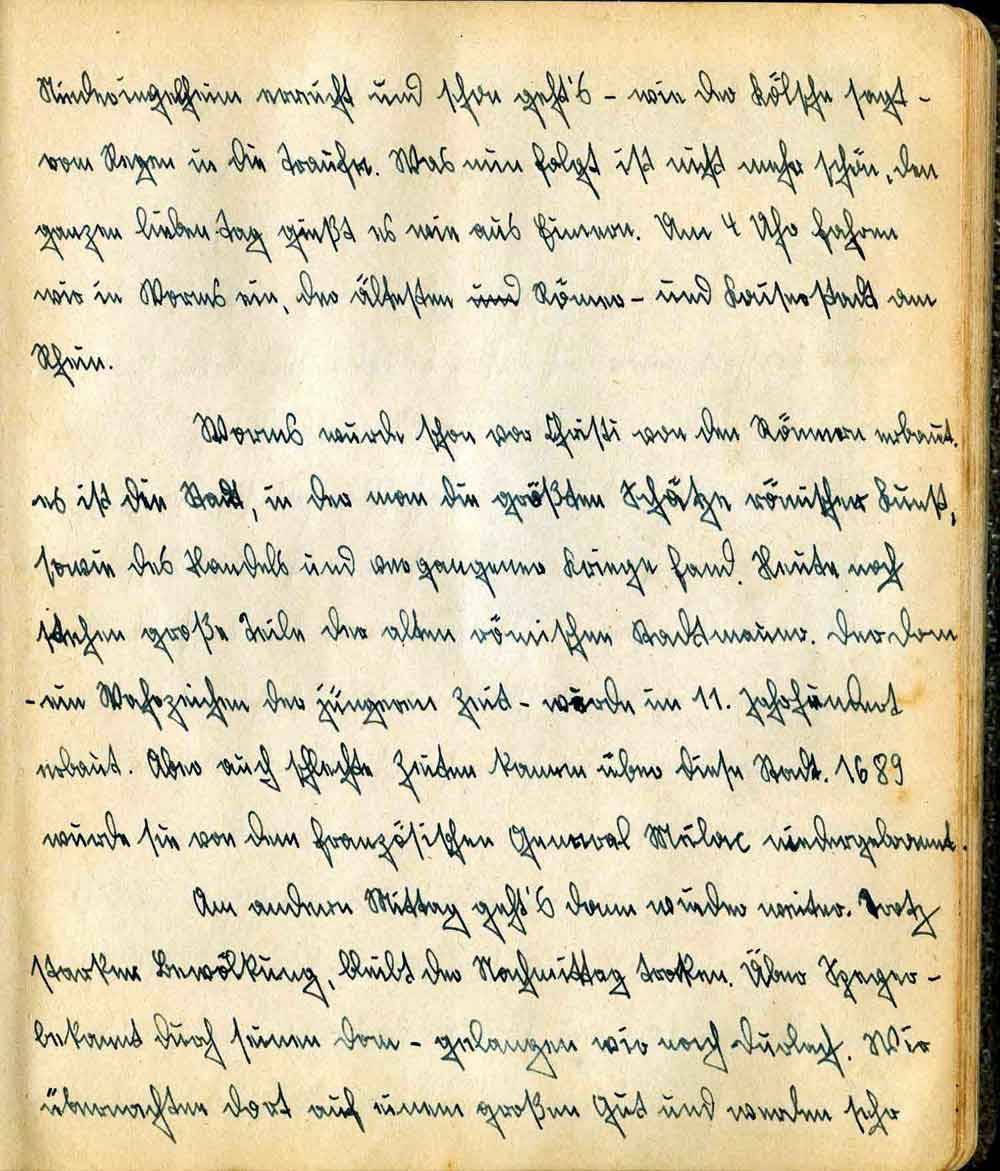 Niederingelheim erreicht und schon geht's – wie der Kölsche sagt –
vom Regen in die Traufe. Was nun folgt ist nicht mehr schön, den
ganzen lieben Tag gießt es wie aus Eimern. Um 4 Uhr fahren
wir in Worms ein, der ältesten und Römer – und Kaiserstadt am
Rhein.
Worms wurde schon vor Christi von den Römern erbaut.
es ist die Stadt, in der man die größten Schätze römischer Kunst,
sowie des Handels und vergangener Kriege fand. Heute noch
stehen große Teile der alten römischen Stadtmauer. Der Dom
– ein Wahrzeichen der jüngeren Zeit – wurde im 11. Jahrhundert
erbaut. Aber auch schlechte Zeiten kamen über diese Stadt. 1689
wurde sie von dem französischen General Mélac niedergebrannt.
Am andern Mittag geht's dann wieder weiter. Trotz
starker Bewölkung, bleibt der Nachmittag trocken. Über Speyer –
bekannt durch seinen Dom – gelangen wir nach Durlach. Wir
übernachten dort auf einem großen Gut und werden sehr